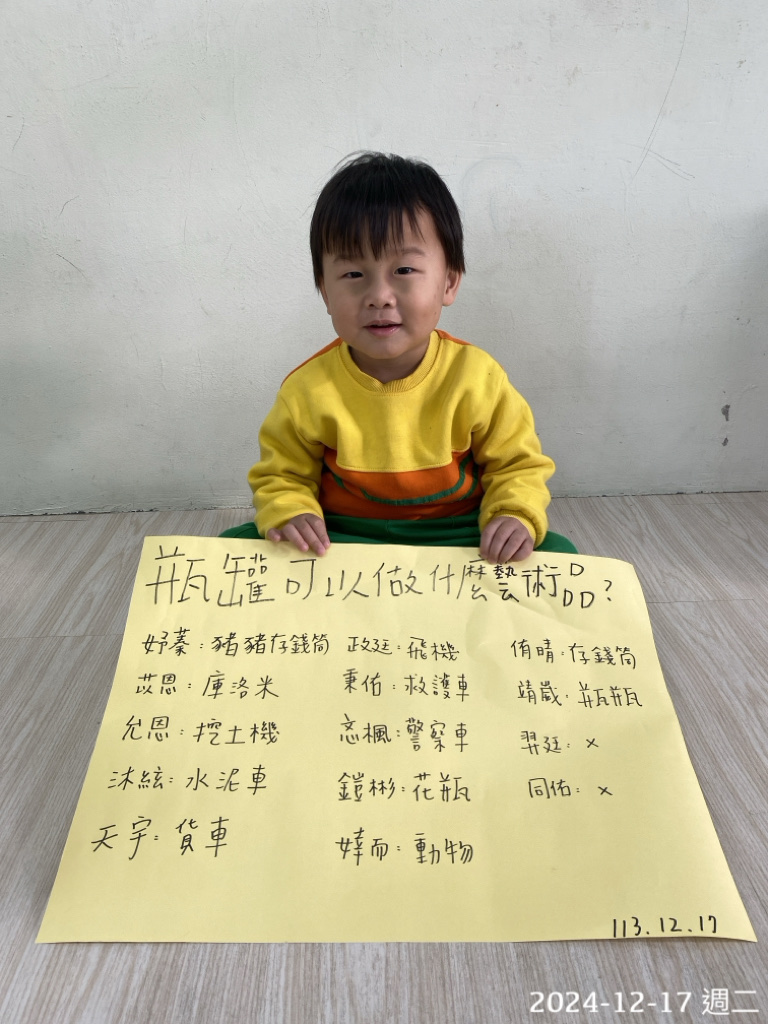 瓶罐可以做什麼藝術品?
妤蓁:豬豬存錢筒
苡恩:庫洛米
允恩:挖土機
沐絃:水泥車
天宇:貨車
政廷:飛機
秉佑:救護車
忞楓:警察車
鎧彬:花瓶
婞而:動物
侑晴:存錢筒
靖崴:瓶瓶
羿廷:×
同佑:×
113.12.17
2024-12-17 週二